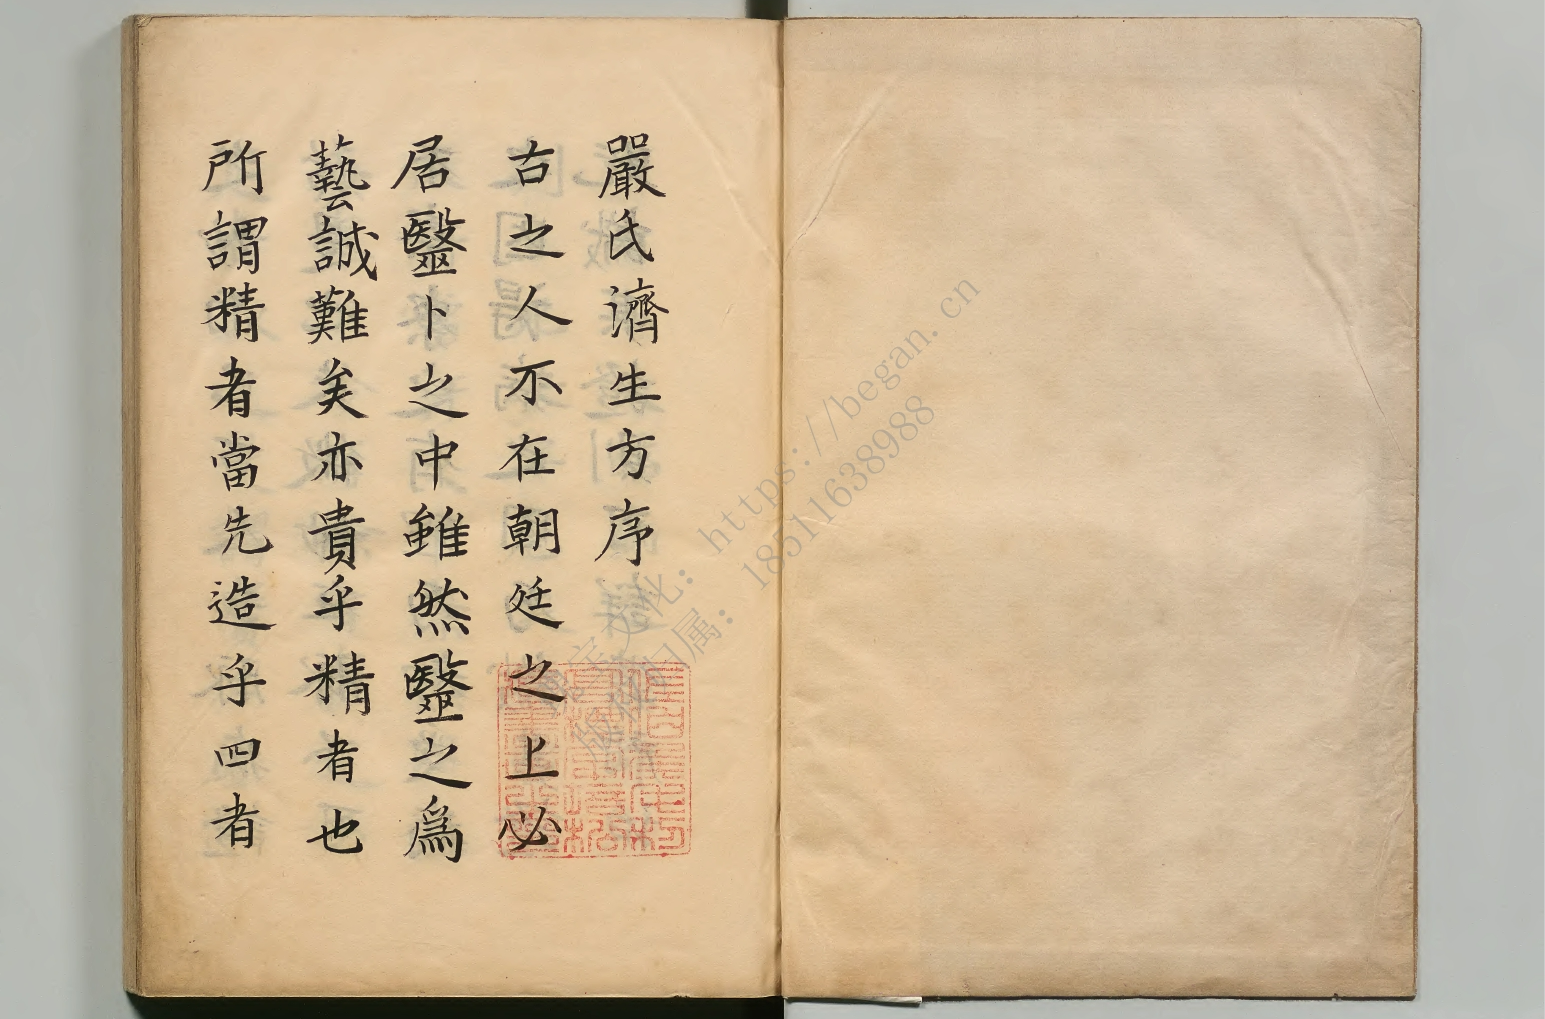 嚴氏濟生方序
古之人不在朝廷之上必
居毉卜之中雖然毉之爲
藝誠難矣亦貴乎精者也
所謂精者當先造乎四者
https://began.cn
18511638988